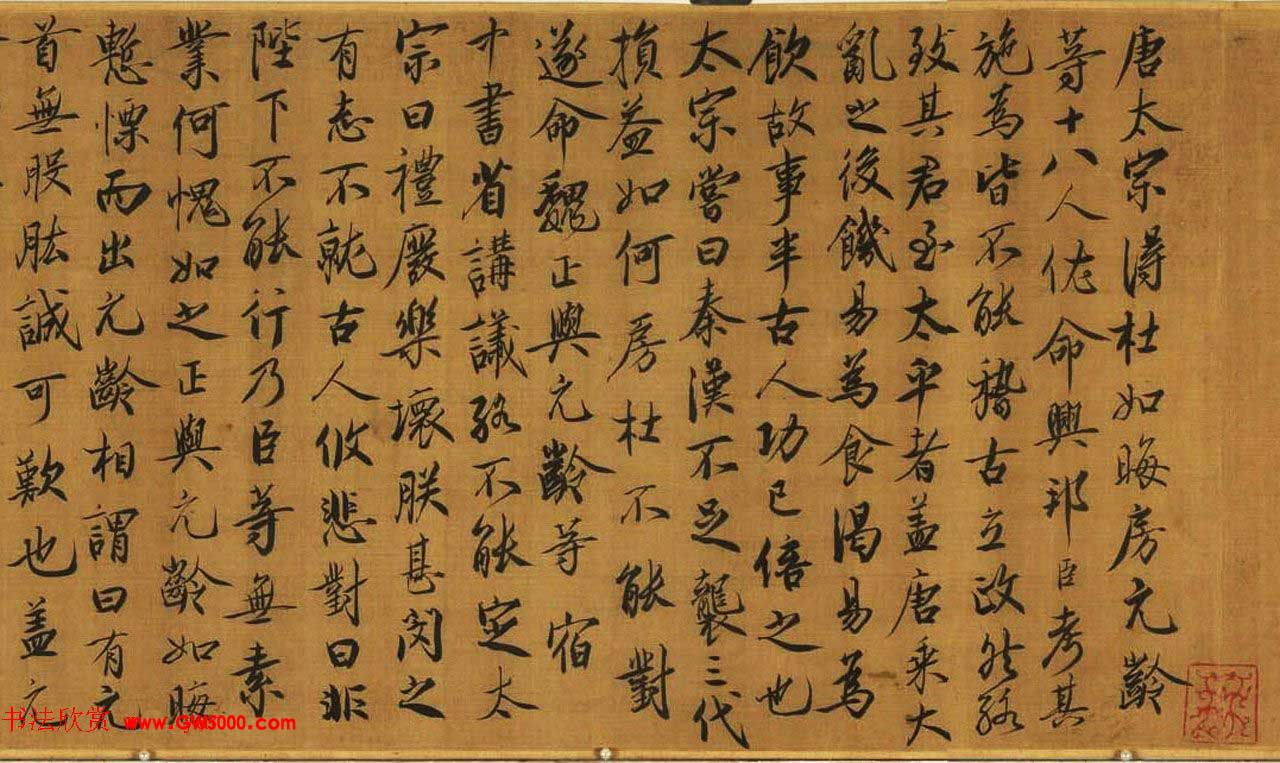 唐太宗得杜如晦房元齡
等十八人佐命興邦臣考其
施為皆不能稽古立政然能
致其君至太平者盖唐乘大
亂之後饑易為食渴易為
飲故事半古人功已倍之也
太宗嘗曰秦漢不足襲三代
損益如何房杜不能對
遂命魏正與元齡等宿
中書省講議终不能定太
宗曰禮廢樂壞朕甚閔之
有志不就古人攸悲對曰非
陛下不能行乃臣等無素
業何愧如之正與元齡如晦
慙慄而出元齡相謂曰有元
首無股肱誠可歎也盖元
书法欣赏 www.GW5000.com